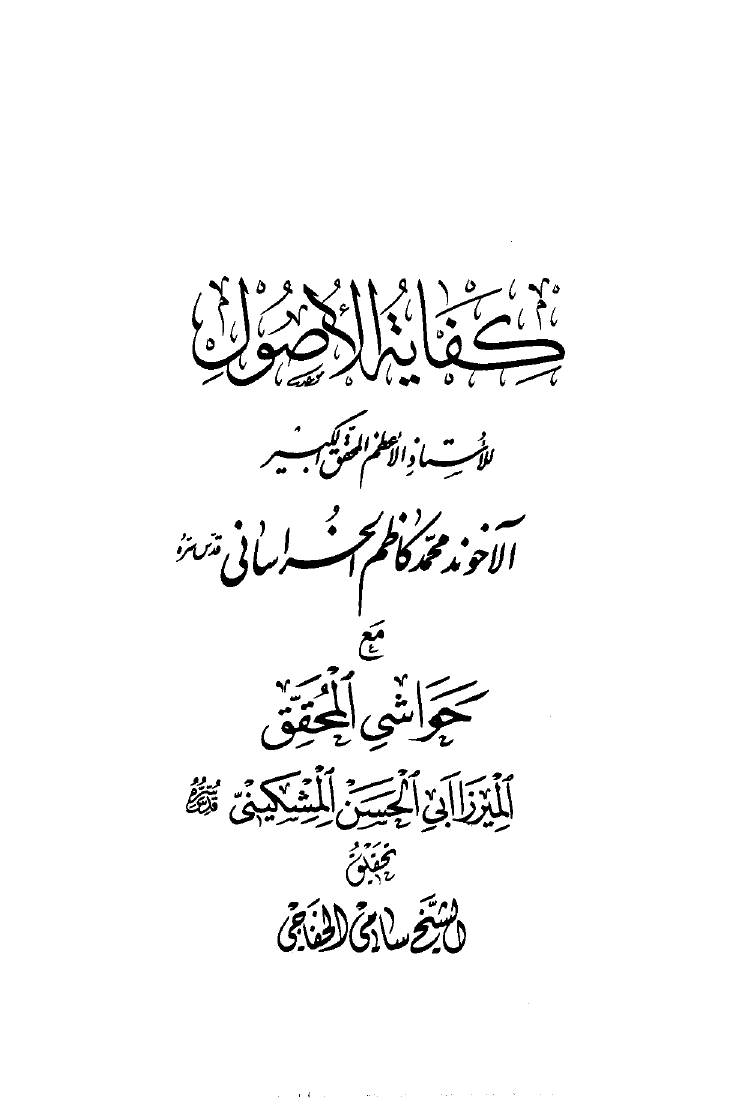 كفاية الأصول
للأستاذ الأعظم المحقق الكبير
الآخوند محمد كاظم الخراساني قدس سره
مع
حواشي المحقق
الميرزا أبي الحسن المشكيني قدس سره
تحقيق
الشيخ سامي الخفاجي